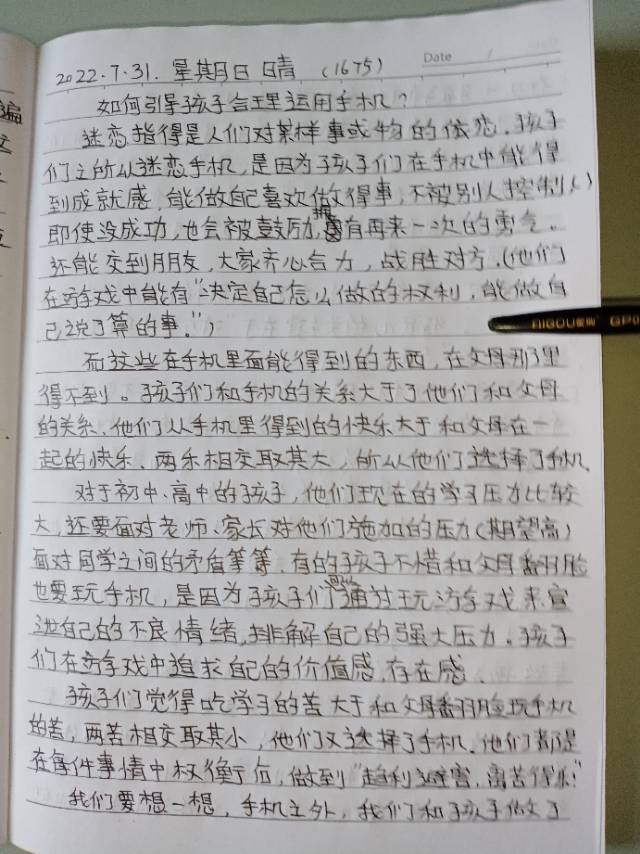 Date
2022.7.31. 星期日 晴 (1675)
如何引导孩子合理运用手机?
迷恋指得是人们对某样事或物的依恋.孩子
们之所以迷恋手机,是因为孩子们在手机中能得
到成就感,能做自己喜欢做得事,不被别人控制(人)
即使没成功,也会被鼓励,拥有再来一次的勇气。
还能交到朋友,大家齐心合力,战胜对方.(他们
在游戏中能有"决定自己怎么做的权利,能做自
己说了算的事.")
而这些在手机里面能得到的东西,在父母那里
得不到。孩子们和手机的关系大于了他们和父母
的关系、他们从手机里得到的快乐大于和父母在一
起的快乐、两乐相交取其大,所以他们选择了手机.
对于初中、高中的孩子,他们现在的学习压力比较
大,还要面对老师、家长对他们施加的压力(期望高)
面对同学之间的矛盾等等,有的孩子不惜和父母翻脸
也要玩手机,是因为孩子们可以通过玩游戏来宣
泄自己的不良情绪,排解自己的强大压力。孩子
们在游戏中追求自己的价值感,存在感.
孩子们觉得吃学习的苦大于和父母翻脸玩手机
的苦,两苦相交取其小,他们又选择了手机.他们都是
在每件事情中权衡了后,做到"趋利避害,离苦得乐"
我们要想一想,手机之外,我们和孩子做了
AIGOU GP11
编